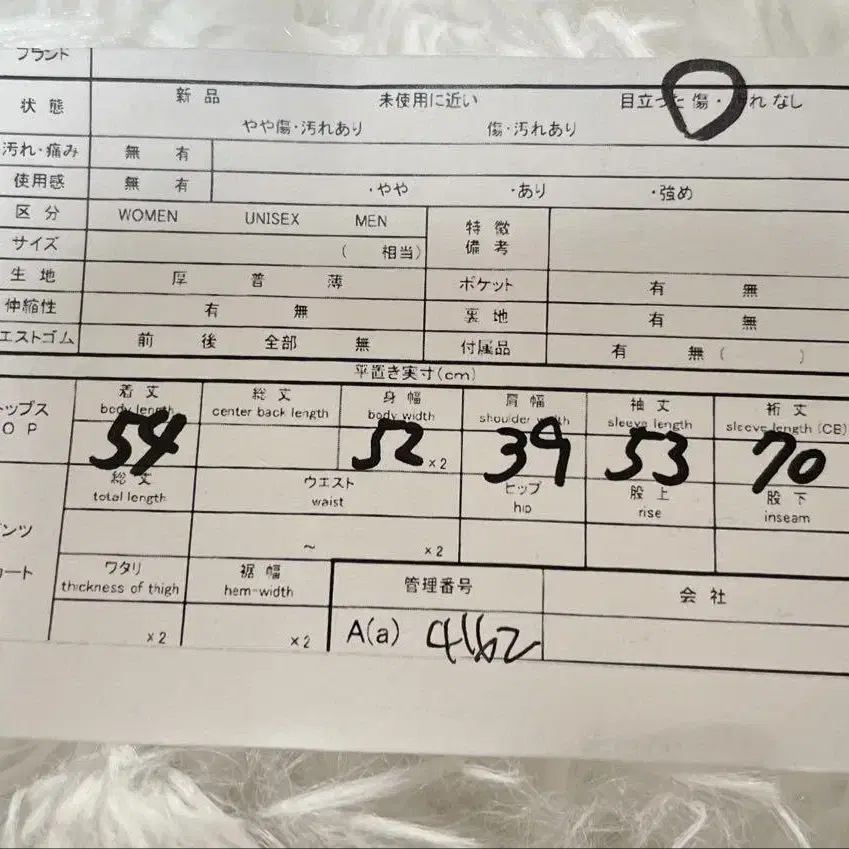 ブランド
状態 新品 未使用に近い 目立った傷・汚れなし
やや傷・汚れあり 傷・汚れあり
汚れ・痛み 無 有
使用感 無 有 ・やや ・あり ・強め
区分 WOMEN UNISEX MEN 特徴
備考
サイズ ( 相当)
生地 厚 普 薄 ポケット 有 無
伸縮性 有 無 裏地 有 無
エストゴム 前 後 全部 無 付属品 有 無 ( )
平置き実寸(cm)
トップス 着丈 総丈 身幅 肩幅 袖丈 裄丈
OP body length center back length body width shoulder width sleeve length sleeve length (CB)
54 52 ×2 39 53 70
総丈 ウエスト ヒップ 股上 股下
total length waist hip rise inseam
ンツ ~ ×2
カート ワタリ 裾幅 管理番号 会社
thickness of thigh hem-width
×2 ×2 A(a) 4162